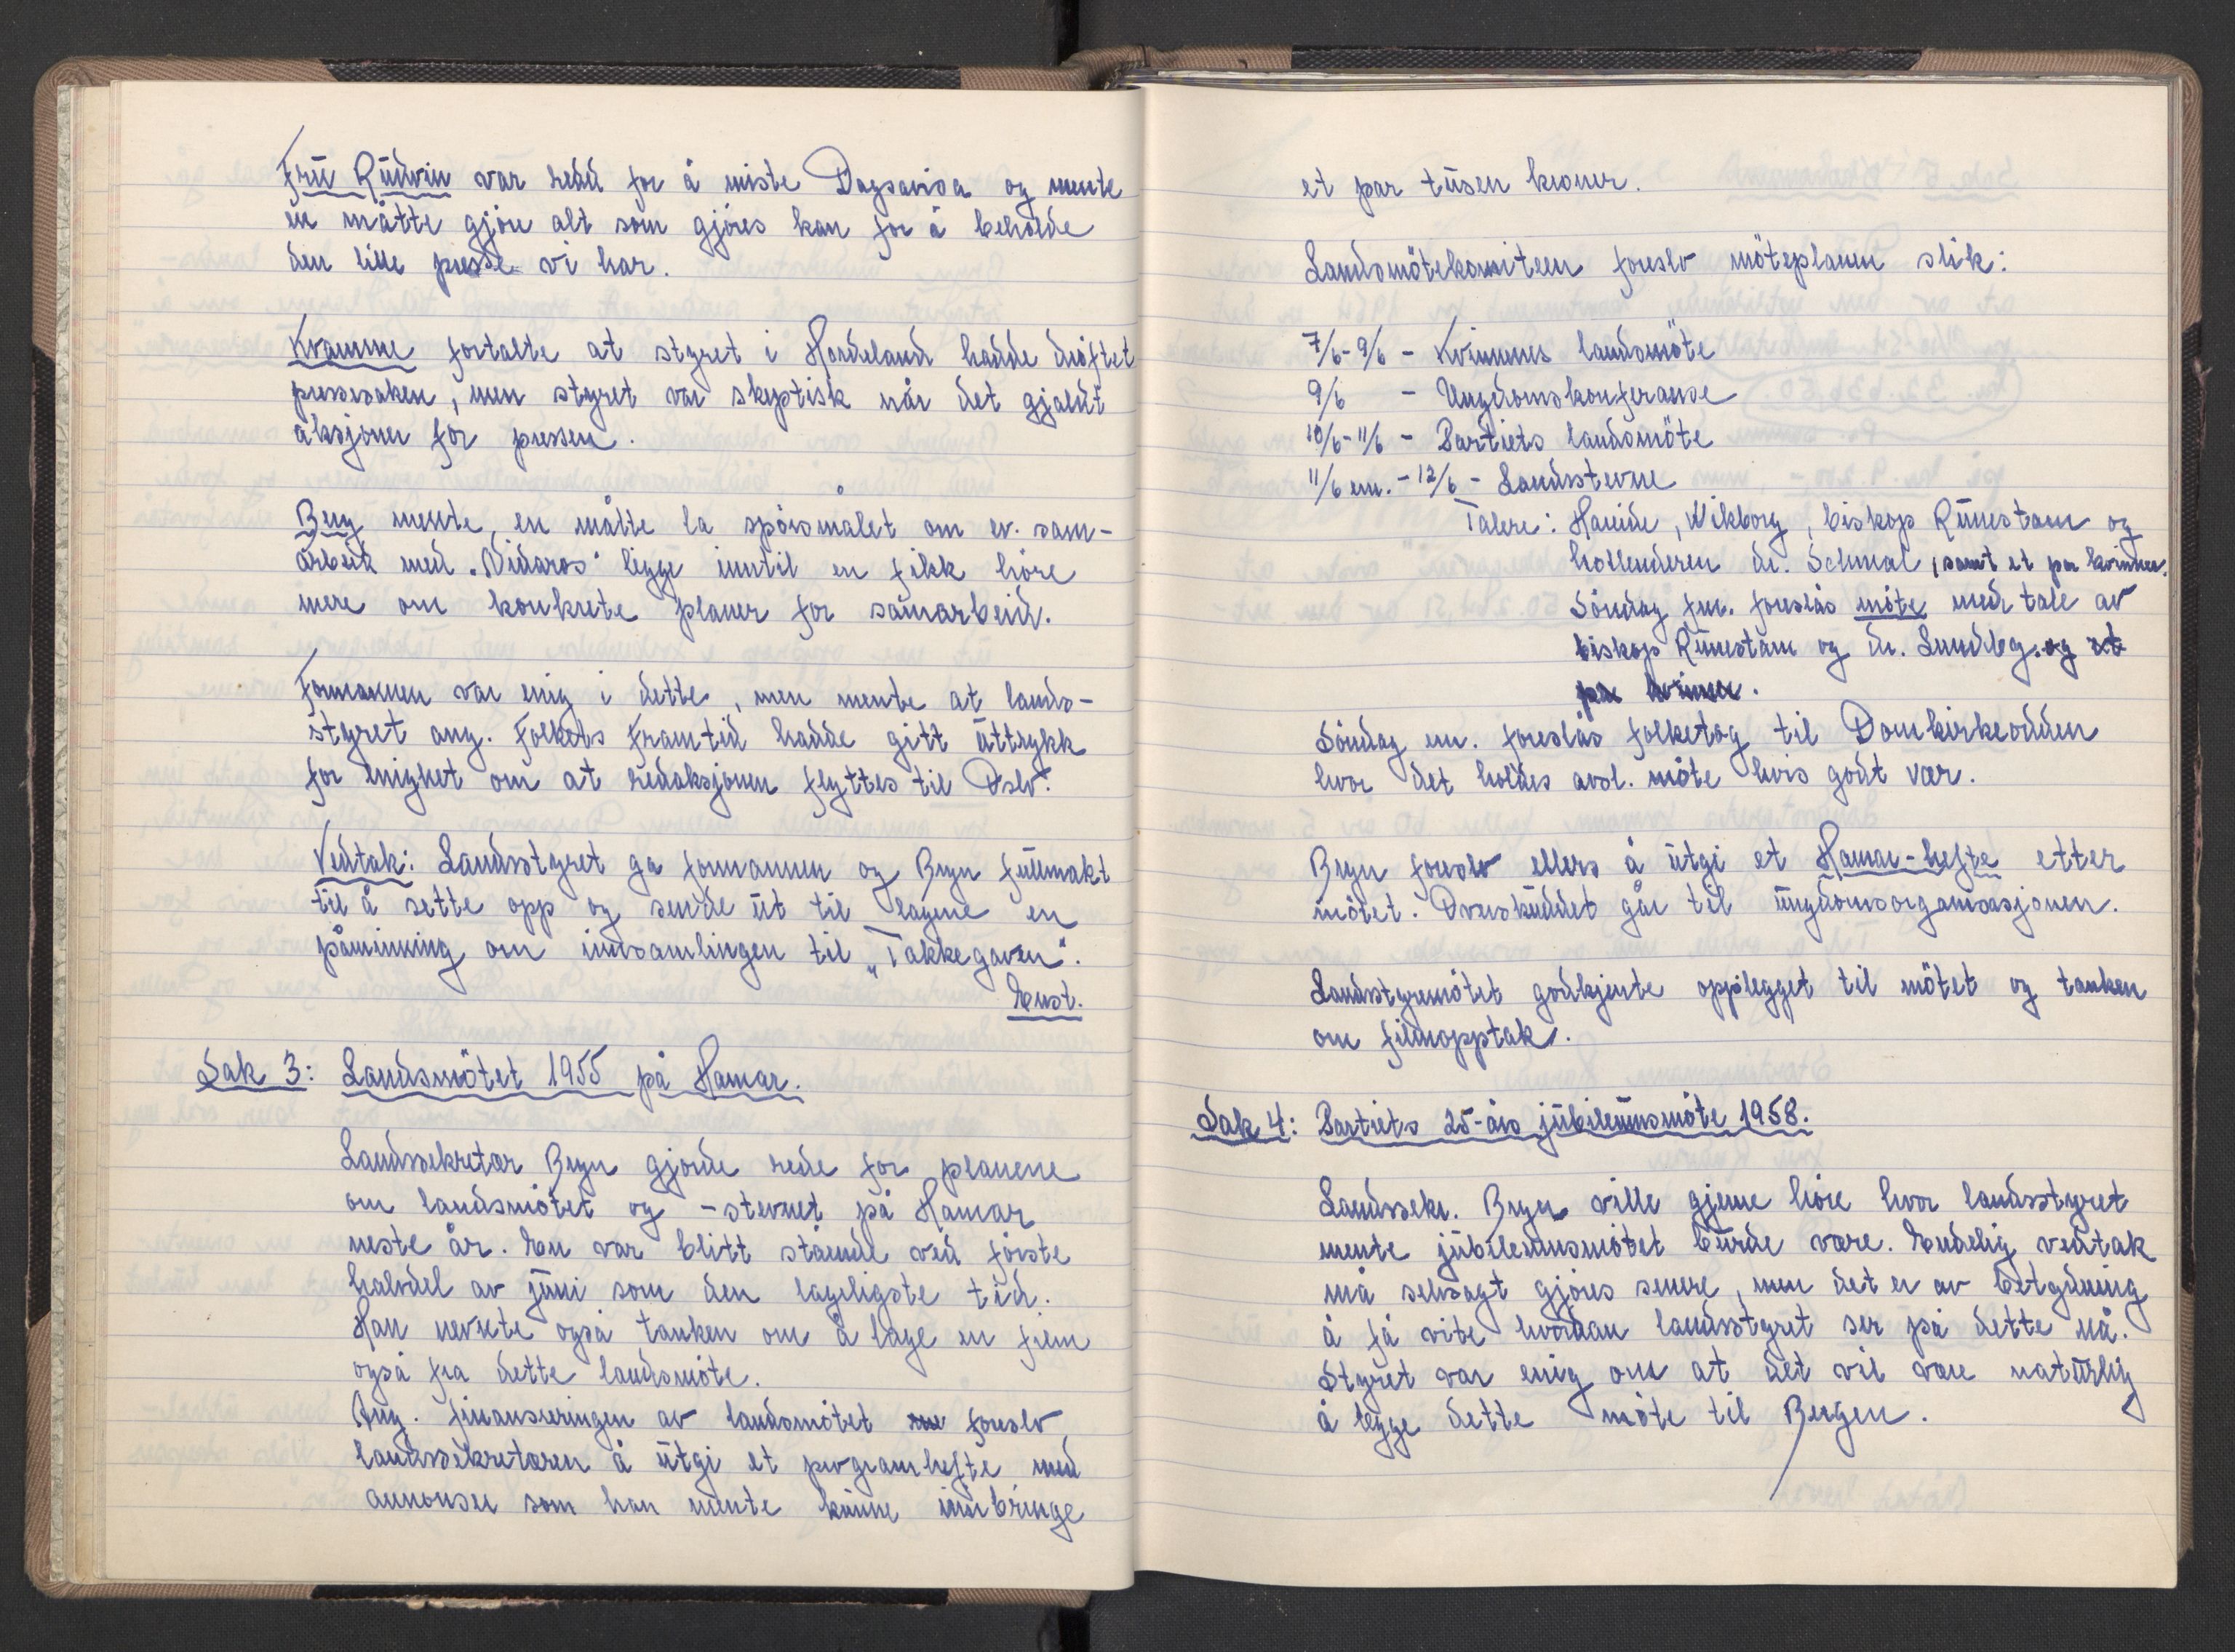 Frü Rüdvin var redd for å miste Dagsavisa og mente
en måtte gjöre alt som gjöres kan for å beholde
den lille presse vi har.
Kvamme fortalte at styret i Hordaland hadde dröftet
pressesaken, men styret var skeptisk når det gjaldt
aksjoner for pressen.
Berg mente, en måtte la spörsmålet om ev. sam-
arbeid med „Nidaros" ligge inntil en fikk höre
mere om konkrete planer for samarbeid.
Formannen var enig i dette, men mente at lands-
styret ang. Folkets Framtid hadde gitt üttrykk
for enighet om at redaksjonen flyttes til Oslo.
Vedtak: Landsstyret ga formannen og Bryn füllmakt
til å sette opp og sende üt til lagene en
påminning om innsamlingen til „Takkegaven".
Enst.
Sak 3: Landsmötet 1955 på Hamar.
Landssekretær Bryn gjorde rede for planene
om landsmötet og -stevnet på Hamar
neste år. En var blitt stående ved förste
halvdel av jüni som den lageligste tid.
Han nevnte også tanken om å lage en film
også fra dette landsmöte.
Ang. finansieringen av landsmötet foreslo
landssekretæren å ütgi et programhefte med
annonser som han mente künne innbringe
et par tüsen kroner.
Landsmötekomiteen foreslo möteplanen slik:
7/6-9/6 - Kvinnenes landsmöte
9/6 - Ungdomskonferanse
10/6-11/6 - Partiets landsmöte
11/6 em. - 12/6 - Landsstevne
Talere: Hareide, Wikborg, biskop Rünestam og
hollenderen dr. Schmal, samt et par kvinner.
Söndag fm. foreslås möte med tale av
biskop Rünestam og dr. Lundby. og et
par kvinner.
Söndag em. foreslås folketog til Domkirkeodden
hvor det holdes avsl. möte hvis godt vær.
Bryn foreslo ellers å ütgi et Hamar-hefte etter
mötet. Overskuddet går til üngdomsorganisasjonen.
Landsstyremötet godkjente opplegget til mötet og tanken
om filmopptak.
Sak 4: Partiets 25-års jübileümsmöte 1958.
Landssekr. Bryn ville gjerne höre hvor landsstyret
mente jübileumsmötet bürde være. Endelig vedtak
må selvsagt gjöres senere, men det er av betydning
å få vite hvordan landsstyret ser på dette nå.
Styret var enig om at det vil være natürlig
å legge dette möte til Bergen.